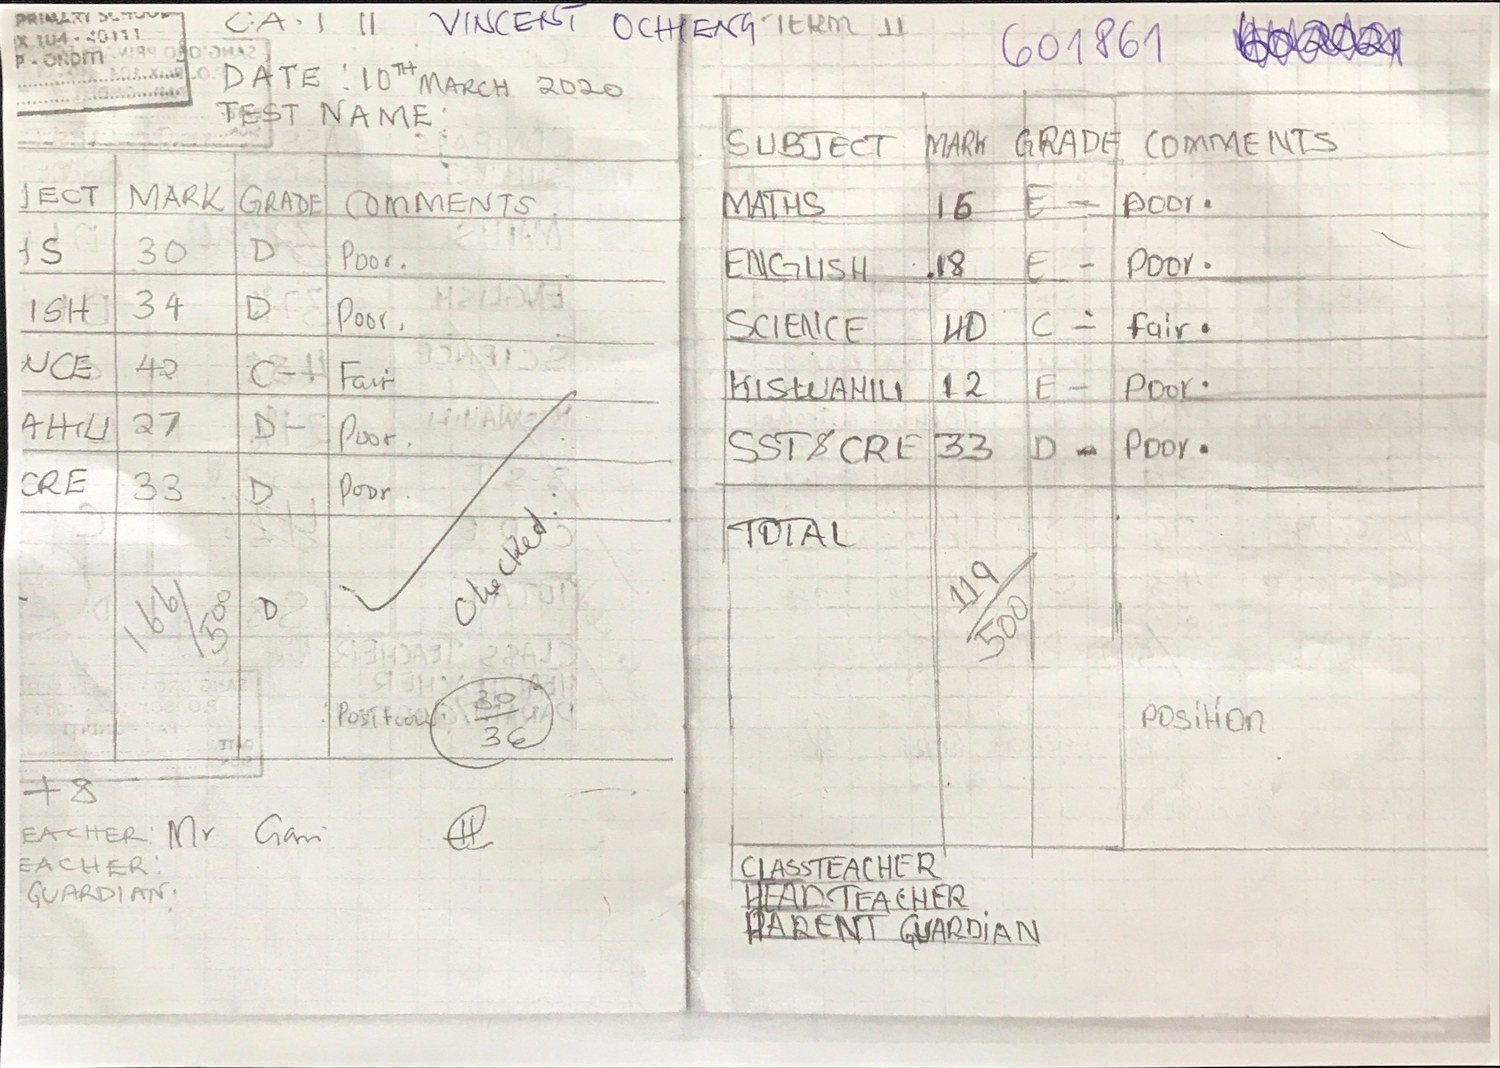 PRIMARY SCHOOL
X 104 - 40111
P - ONDITI
C.A.T II VINCENT OCHIENG TERM II
DATE : 10TH MARCH 2020
TEST NAME:
JECT MARK GRADE COMMENTS
HS 30 D Poor.
ISH 34 D Poor.
NCE 42 C- Fair
AHILI 27 D- Poor.
CRE 33 D Poor.
166/500 D
Checked.
30/36
+8
EACHER: Mr Gari
EACHER:
GUARDIAN:
601861
SUBJECT MARK GRADE COMMENTS
MATHS 16 E - poor.
ENGLISH 18 E - Poor.
SCIENCE 40 C - fair.
KISWAHILI 12 E - Poor.
SST & CRE 33 D - Poor.
TOTAL
119/500
POSITION
CLASSTEACHER
HEADTEACHER
PARENT GUARDIAN